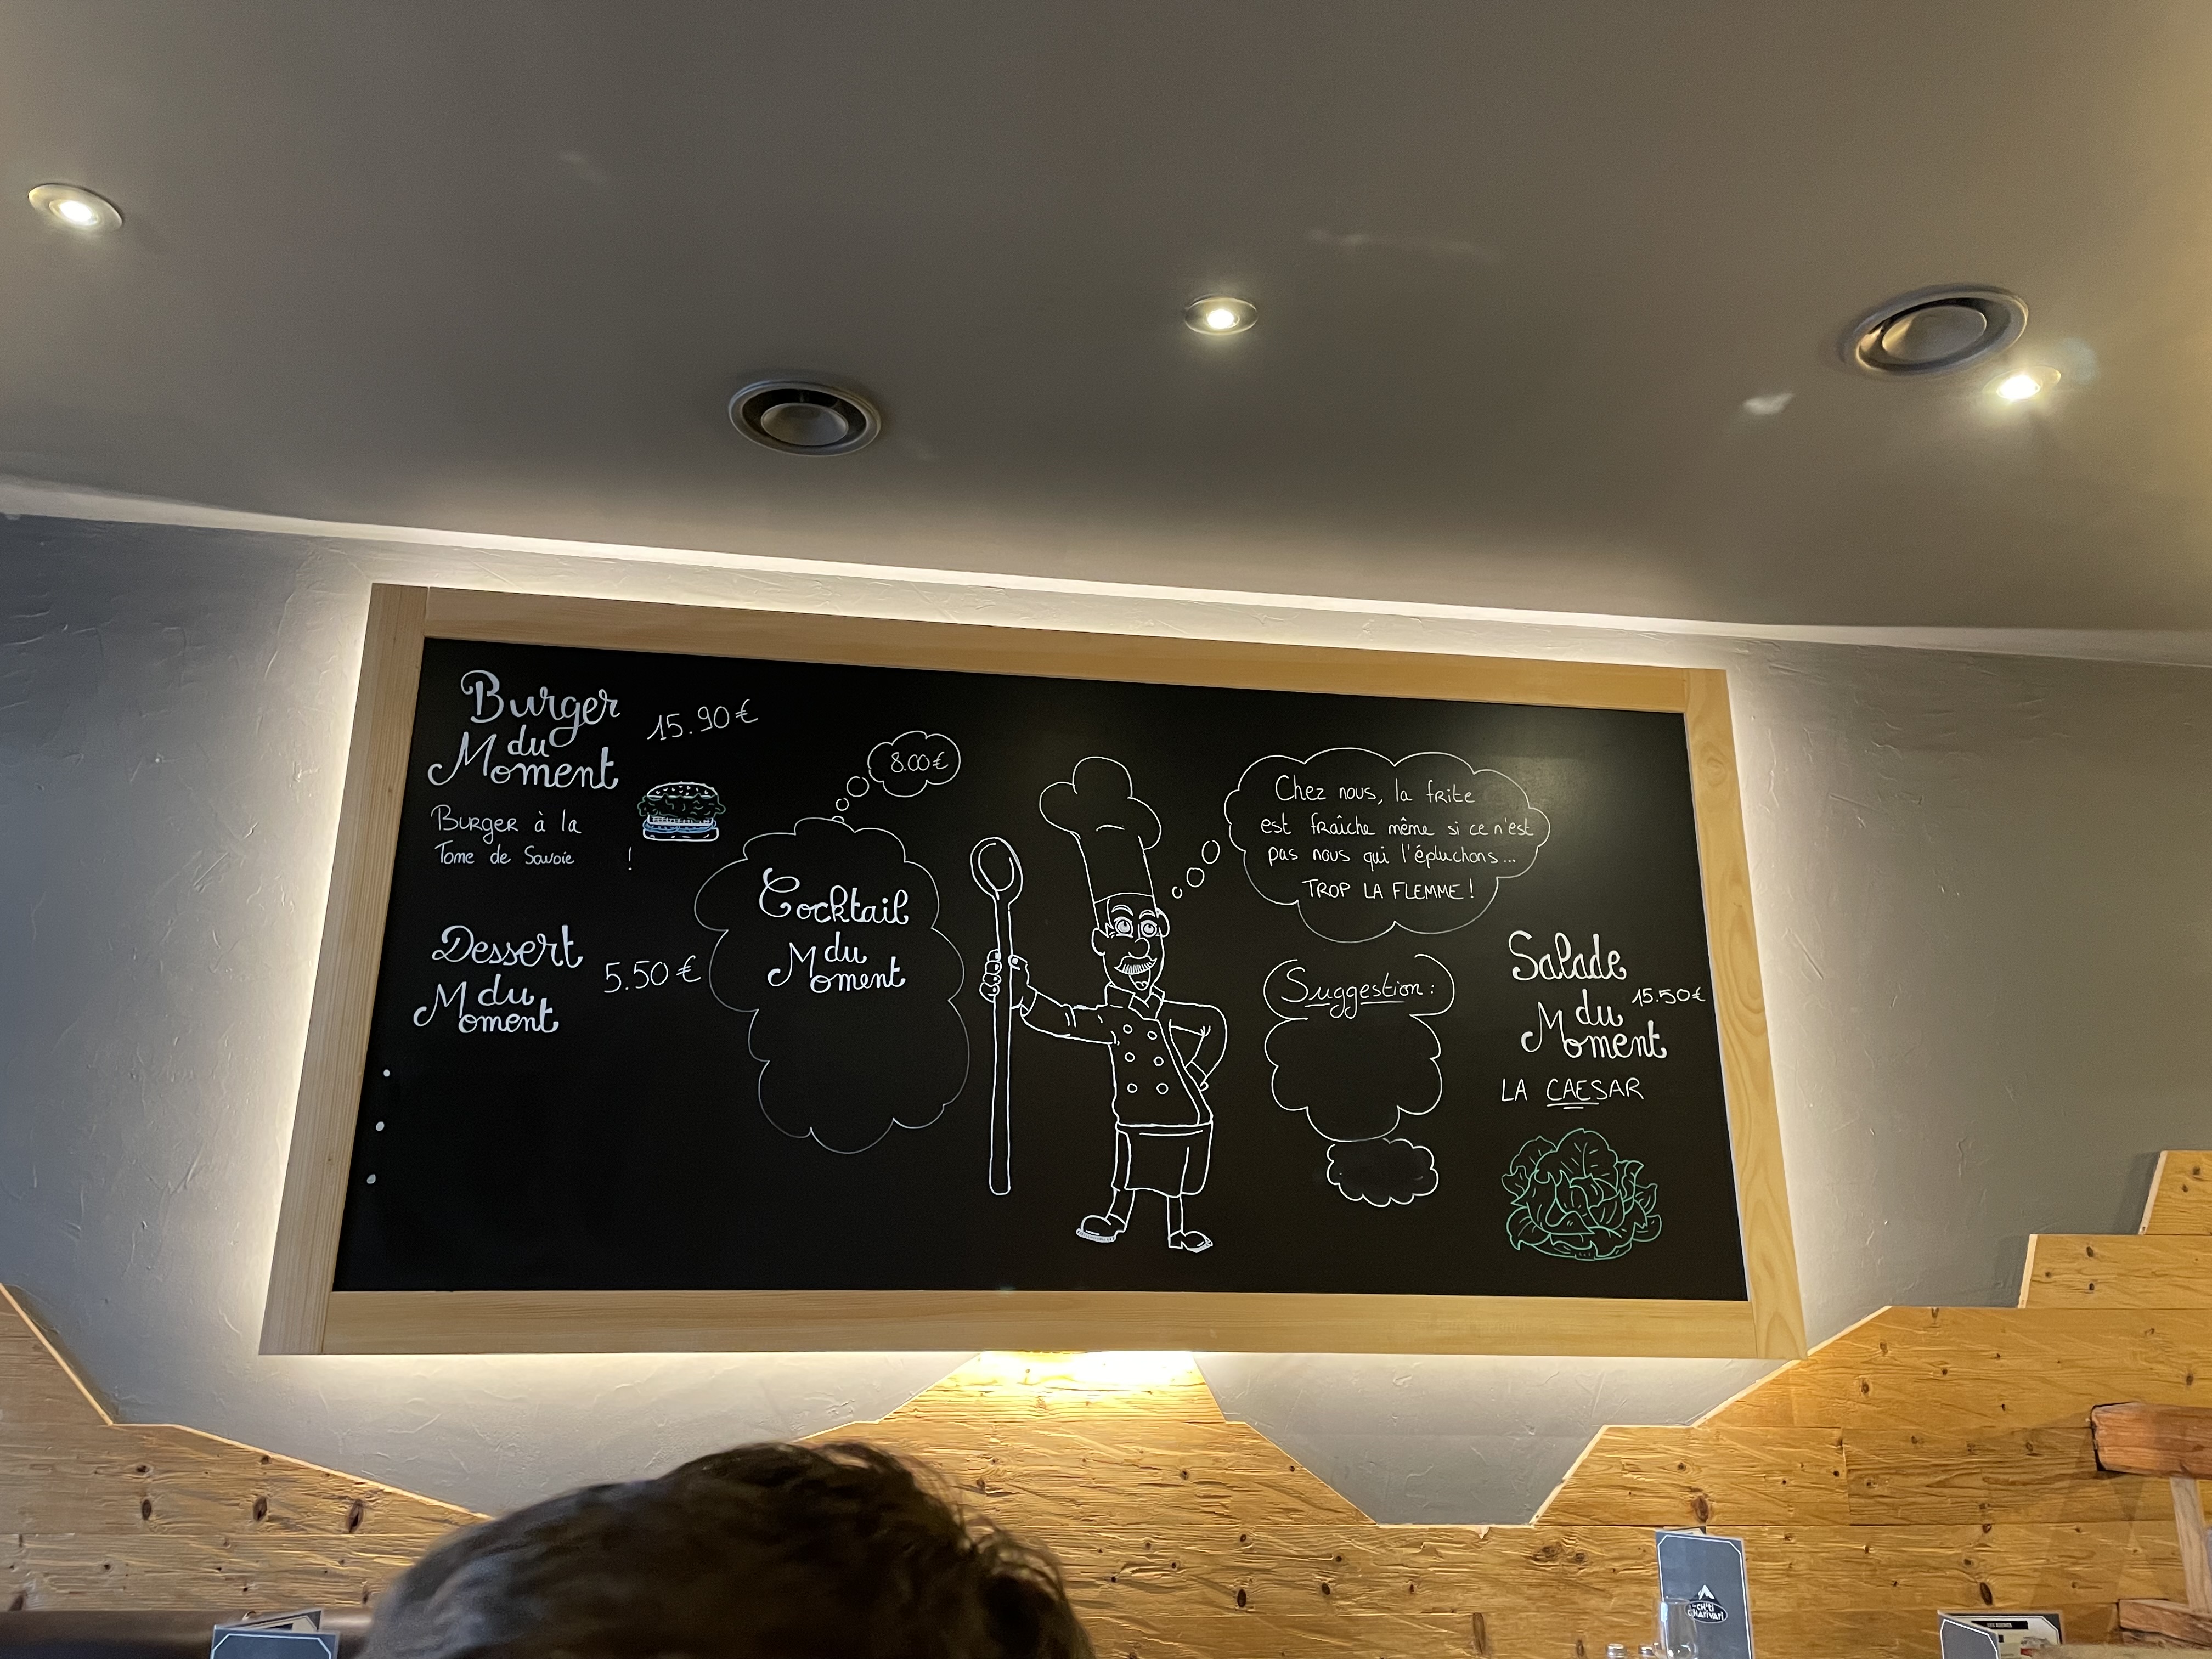 Burger
du
Moment
15.90 €
Burger à la
Tome de Savoie !
Dessert
du
Moment
5.50 €
8.00 €
Cocktail
du
Moment
Chez nous, la frite
est fraîche même si ce n'est
pas nous qui l'épluchons...
TROP LA FLEMME !
Suggestion :
Salade
du
Moment
15.50 €
LA CAESAR
CH'TI
CHARIVARI